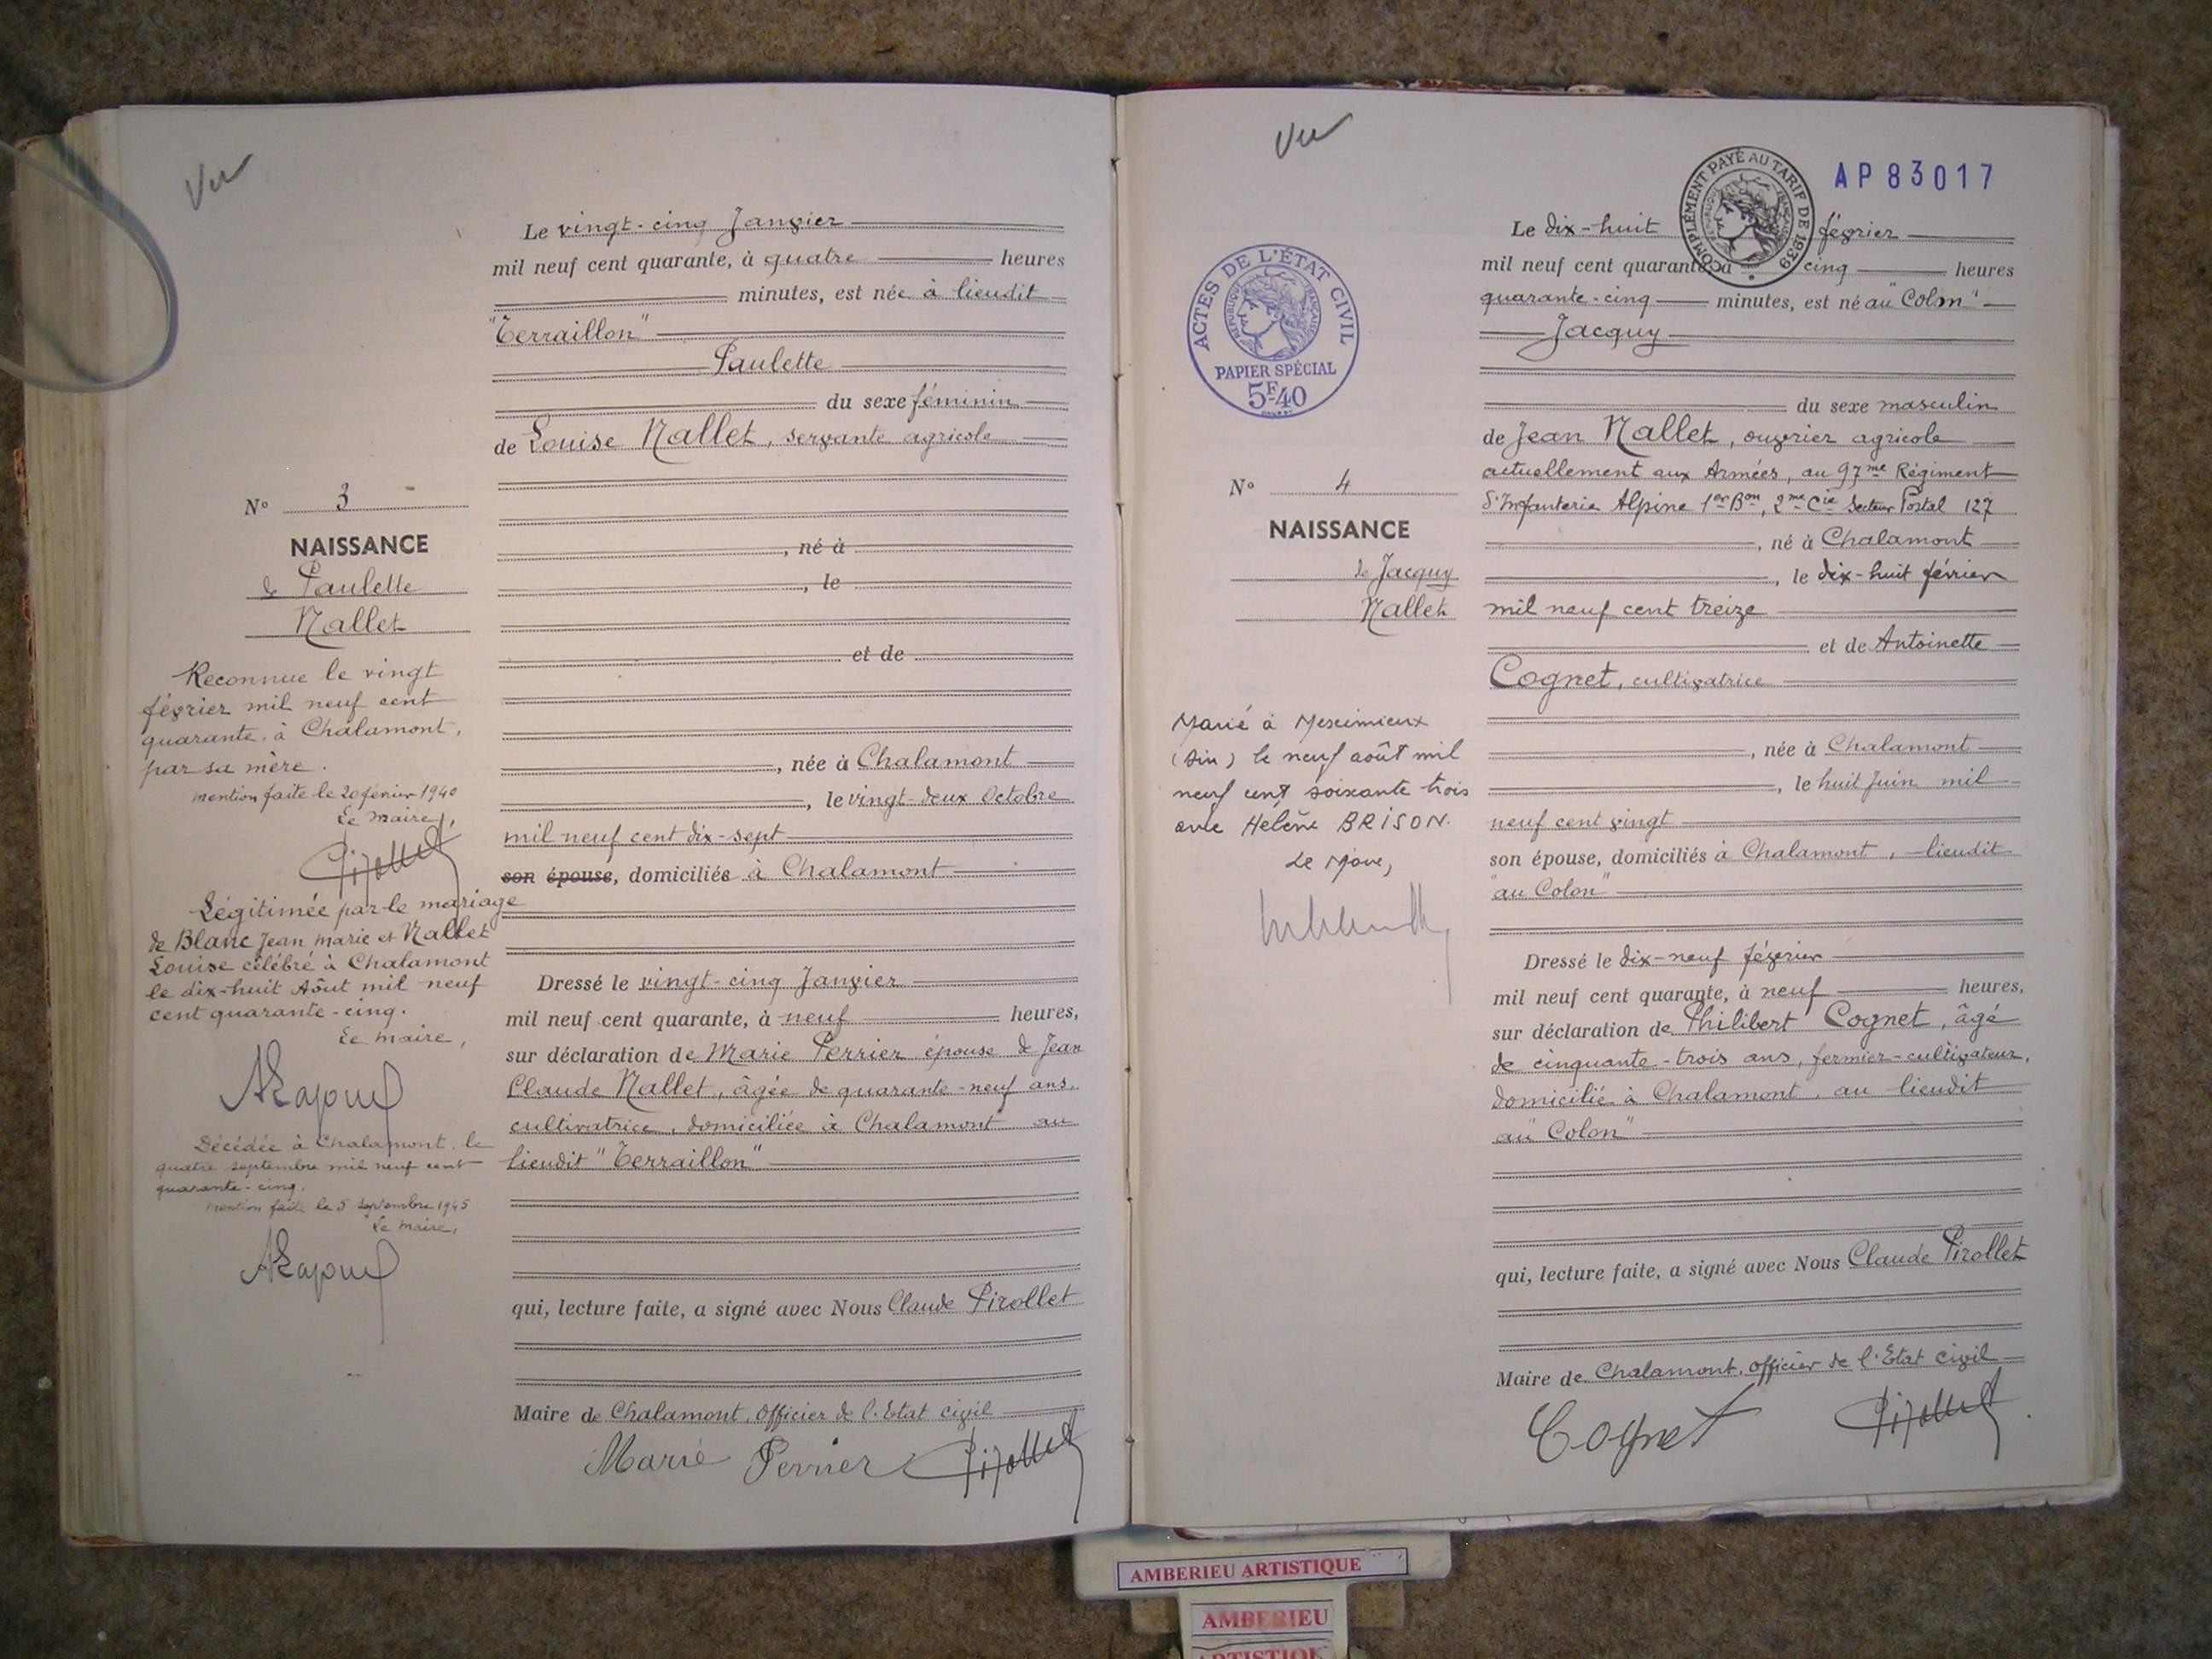 Vu
Le vingt-cinq Janvier
mil neuf cent quarante, à quatre heures
minutes, est née à lieudit
"Terraillon"
Paulette
du sexe féminin
de Louise Nallet, servante agricole
, né à
, le
et de
, née à Chalamont
, le vingt-deux Octobre
mil neuf cent dix-sept
son épouse, domiciliée à Chalamont
Dressé le vingt-cinq Janvier
mil neuf cent quarante, à neuf heures,
sur déclaration de Marie Perrier épouse de Jean
Claude Nallet, âgée de quarante-neuf ans,
cultivatrice, domiciliée à Chalamont au
lieudit "Terraillon"
qui, lecture faite, a signé avec Nous Claude Pirollet
Maire de Chalamont, Officier de l'Etat civil
Marie Perrier Pirollet
N° 3
NAISSANCE
de Paulette
Nallet
Reconnue le vingt
février mil neuf cent
quarante, à Chalamont,
par sa mère.
mention faite le 20 février 1940
Le maire,
Pirollet
Légitimée par le mariage
de Blanc Jean Marie et Nallet
Louise célébré à Chalamont
le dix-huit Août mil neuf
cent quarante-cinq.
Le maire,
Décédée à Chalamont le
quatre septembre mil neuf cent
quarante-cinq.
mention faite le 5 septembre 1945
Le maire,
Vu
COMPLÉMENT PAYÉ AU TARIF DE 1939
RÉPUBLIQUE FRANÇAISE
AP 83017
ACTES DE L'ÉTAT CIVIL
RÉPUBLIQUE FRANÇAISE
PAPIER SPÉCIAL
5F40
Le dix-huit février
mil neuf cent quarante, à cinq heures
quarante-cinq minutes, est né au "Colon"
Jacquy
du sexe masculin
de Jean Nallet, ouvrier agricole
actuellement aux Armées, au 97me Régiment
d'Infanterie Alpine 1er Bon, 2me Cie Secteur Postal 127
, né à Chalamont
, le dix-huit février
mil neuf cent treize
et de Antoinette
Cognet, cultivatrice
, née à Chalamont
, le huit Juin mil
neuf cent vingt
son épouse, domiciliés à Chalamont, lieudit
"au Colon"
Dressé le dix-neuf février
mil neuf cent quarante, à neuf heures,
sur déclaration de Philibert Cognet, âgé
de cinquante-trois ans, fermier-cultivateur,
domicilié à Chalamont, au lieudit
au "Colon"
qui, lecture faite, a signé avec Nous Claude Pirollet
Maire de Chalamont, officier de l'Etat civil
Cognet Pirollet
N° 4
NAISSANCE
de Jacquy
Nallet
Marié à Meximieux
(Ain) le neuf août mil
neuf cent soixante trois
avec Hélène BRISON.
Le Maire,
AMBERIEU ARTISTIQUE
AMBERIEU
ARTISTIQUE